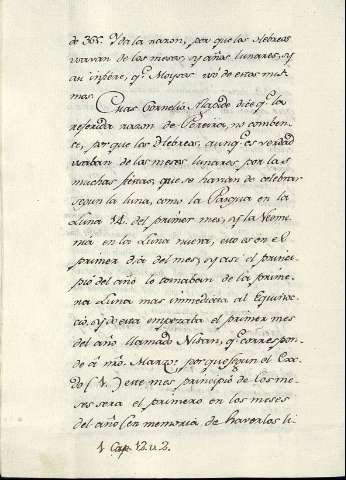 de 365. Y da la razon, por que los Hebreos
usavan de los meses, y años lunares, y
asi infiere, q.e Moyses usó de estos mis
mos.
Mas Cornelio Alapide dice q.e la
referida razon de Pereira, no comben-
ce, por que los Hebreos, aunq.e es verdad
usaban de los meses lunares por las
muchas fiestas, que se havian de celebrar
segun la luna, como la Pasqua en la
Luna 14. del primer mes, y la Neome-
nia en la Luna nueva, esto es en el
primer dia del mes, y asi el princi-
pio del año le tomaban de la prime-
ra Luna mas immediata al Equinoc-
cio, y desta empezaba el primer mes
del año llamado Nisan, q.e correspon-
de à nro. Marzo: porque segun el Exo-
do (1.) este mes principio de los me-
ses sera el primero en los meses
del año (en memoria de haverlos li-
1 Cap. 12. v. 2.